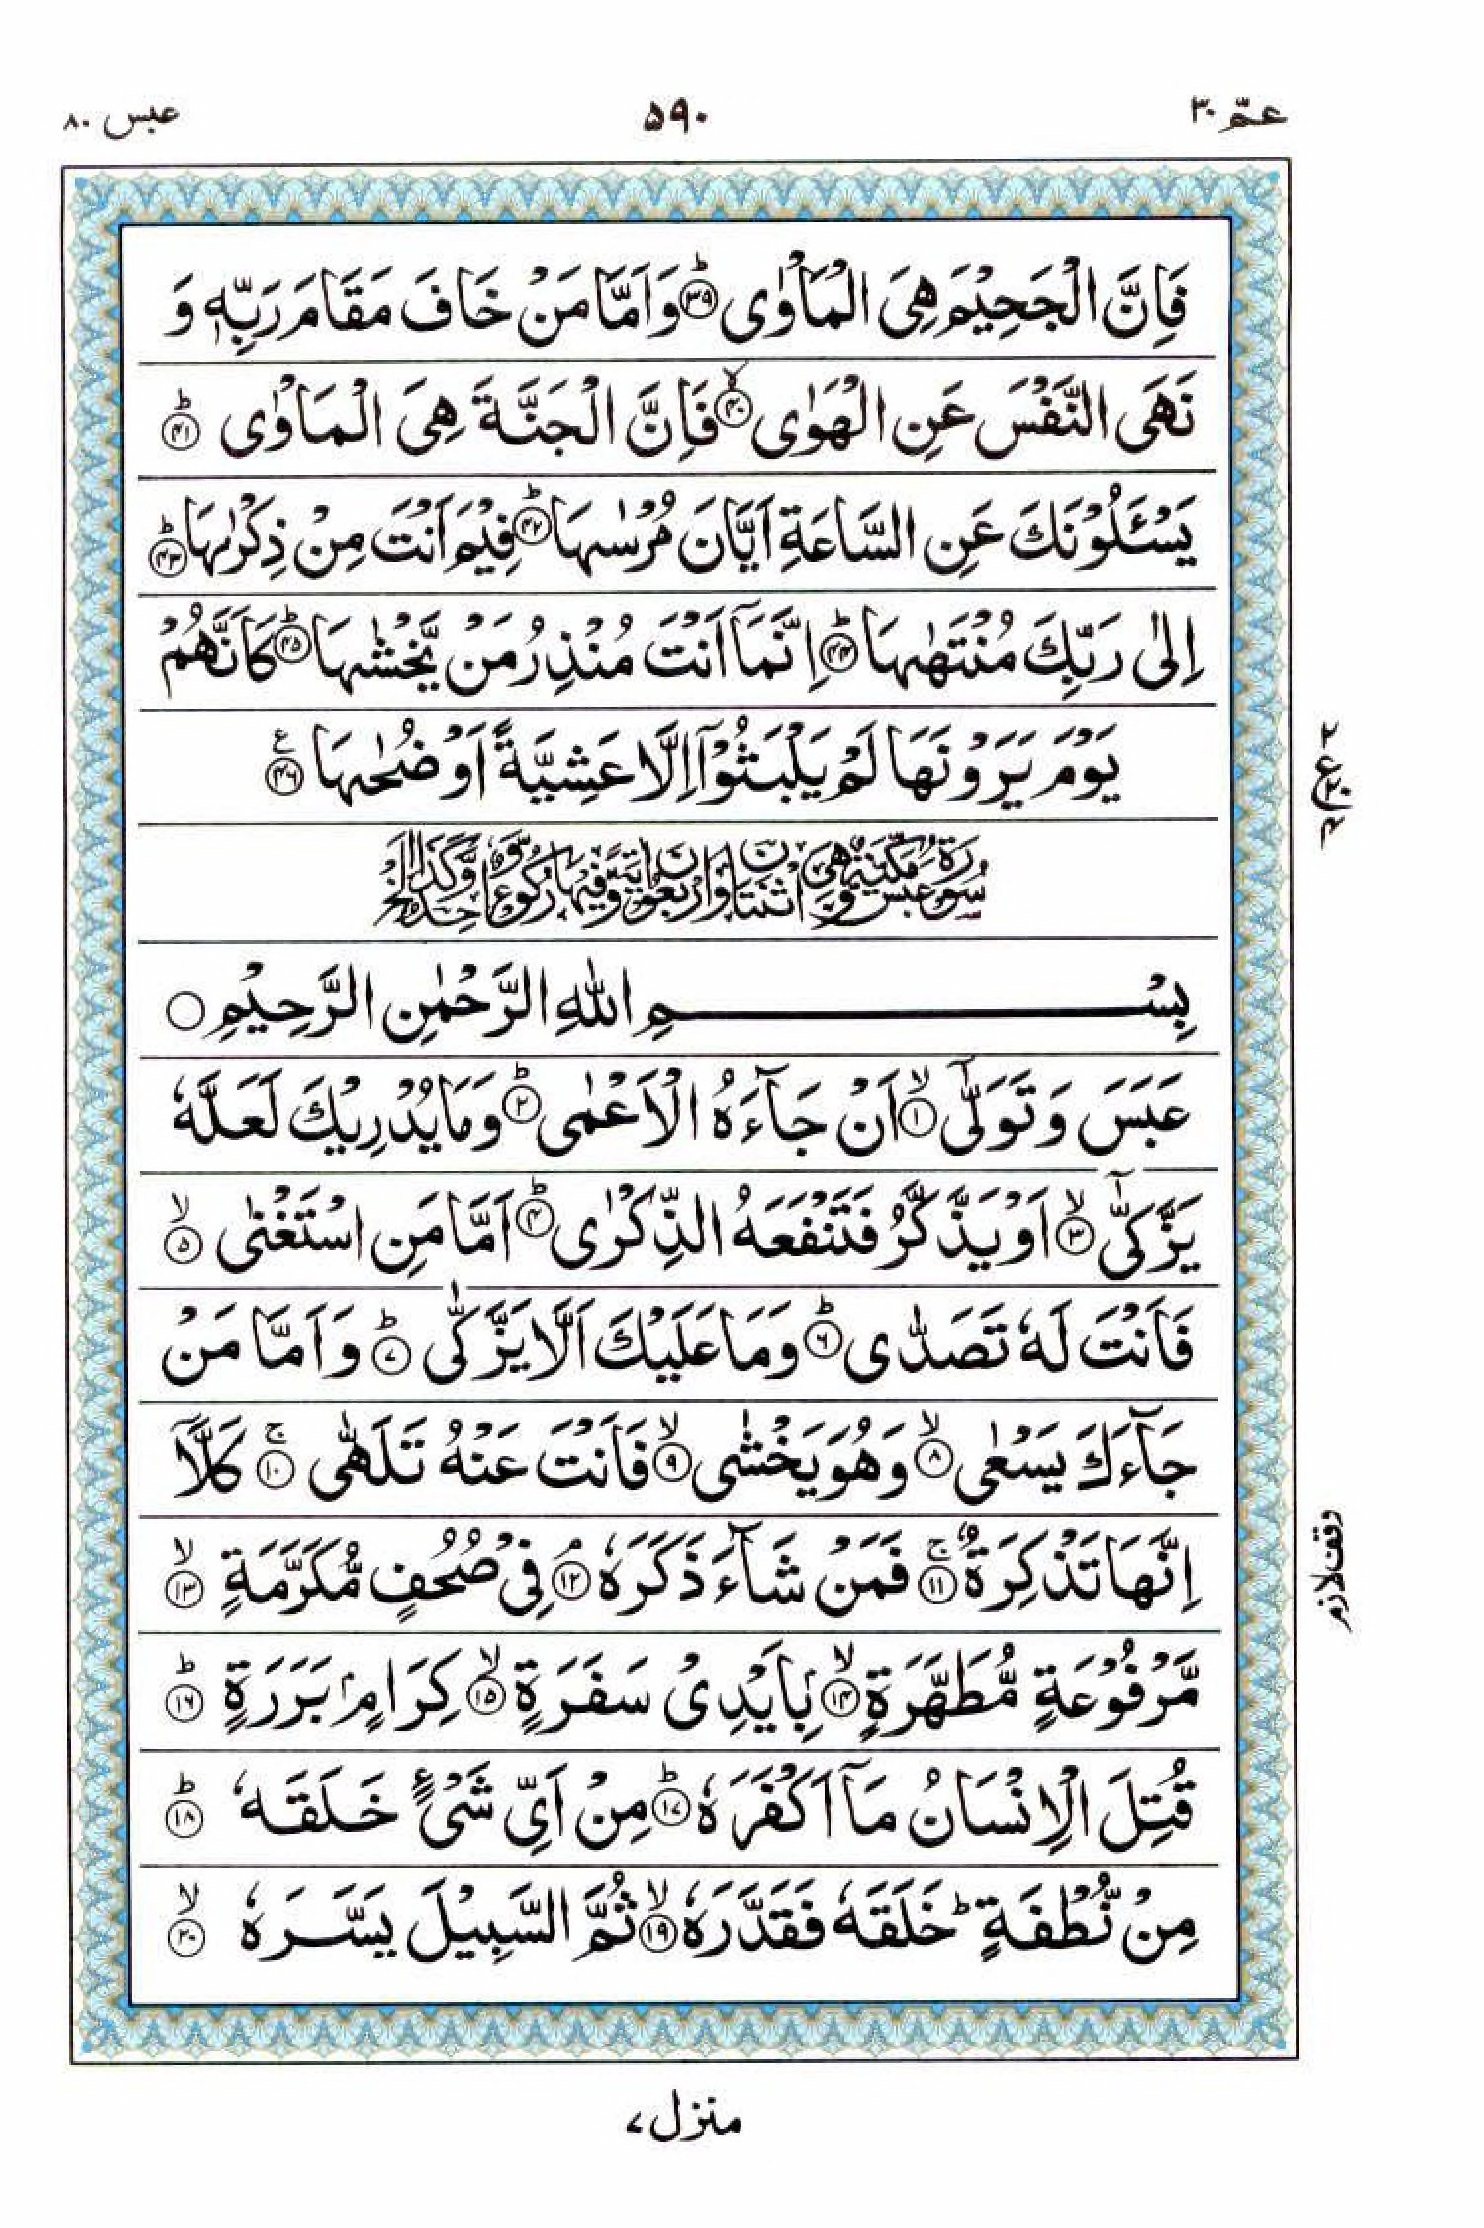 عمّ ۳۰
۵۹۰
عبس ۸۰
فَاِنَّ الْجَحِيْمَ هِيَ الْمَاْوٰى ۳۹ وَاَمَّا مَنْ خَافَ مَقَامَ رَبِّهٖ وَ
نَهَى النَّفْسَ عَنِ الْهَوٰى ۴۰ فَاِنَّ الْجَنَّةَ هِيَ الْمَاْوٰى ۴۱
يَسْـَٔلُوْنَكَ عَنِ السَّاعَةِ اَيَّانَ مُرْسٰىهَا ۴۲ فِيْمَ اَنْتَ مِنْ ذِكْرٰىهَا ۴۳
اِلٰى رَبِّكَ مُنْتَهٰىهَا ۴۴ اِنَّمَآ اَنْتَ مُنْذِرُ مَنْ يَّخْشٰىهَا ۴۵ كَاَنَّهُمْ
يَوْمَ يَرَوْنَهَا لَمْ يَلْبَثُوْٓا اِلَّا عَشِيَّةً اَوْ ضُحٰىهَا ۴۶
بِسْمِ اللّٰهِ الرَّحْمٰنِ الرَّحِيْمِ
عَبَسَ وَتَوَلّٰىٓ ۱ اَنْ جَآءَهُ الْاَعْمٰى ۲ وَمَا يُدْرِيْكَ لَعَلَّهٗ
يَزَّكّٰىٓ ۳ اَوْ يَذَّكَّرُ فَتَنْفَعَهُ الذِّكْرٰى ۴ اَمَّا مَنِ اسْتَغْنٰى ۵
فَاَنْتَ لَهٗ تَصَدّٰى ۶ وَمَا عَلَيْكَ اَلَّا يَزَّكّٰى ۷ وَاَمَّا مَنْ
جَآءَكَ يَسْعٰى ۸ وَهُوَ يَخْشٰى ۹ فَاَنْتَ عَنْهُ تَلَهّٰى ۱۰ كَلَّآ
اِنَّهَا تَذْكِرَةٌ ۱۱ فَمَنْ شَآءَ ذَكَرَهٗ ۱۲ فِيْ صُحُفٍ مُّكَرَّمَةٍ ۱۳
مَّرْفُوْعَةٍ مُّطَهَّرَةٍۭ ۱۴ بِاَيْدِيْ سَفَرَةٍ ۱۵ كِرَامٍۭ بَرَرَةٍ ۱۶
قُتِلَ الْاِنْسَانُ مَآ اَكْفَرَهٗ ۱۷ مِنْ اَيِّ شَيْءٍ خَلَقَهٗ ۱۸
مِنْ نُّطْفَةٍ ؕ خَلَقَهٗ فَقَدَّرَهٗ ۱۹ ثُمَّ السَّبِيْلَ يَسَّرَهٗ ۲۰
وقف لازم
منزل ۷